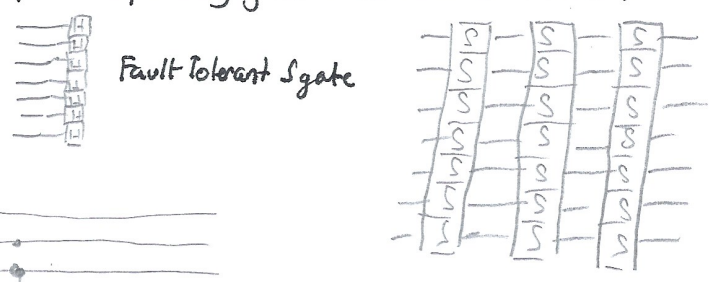 H
H
H
H
H
H
H
Fault Tolerant S gate
S S S
S S S
S S S
S S S
S S S
S S S
S S S